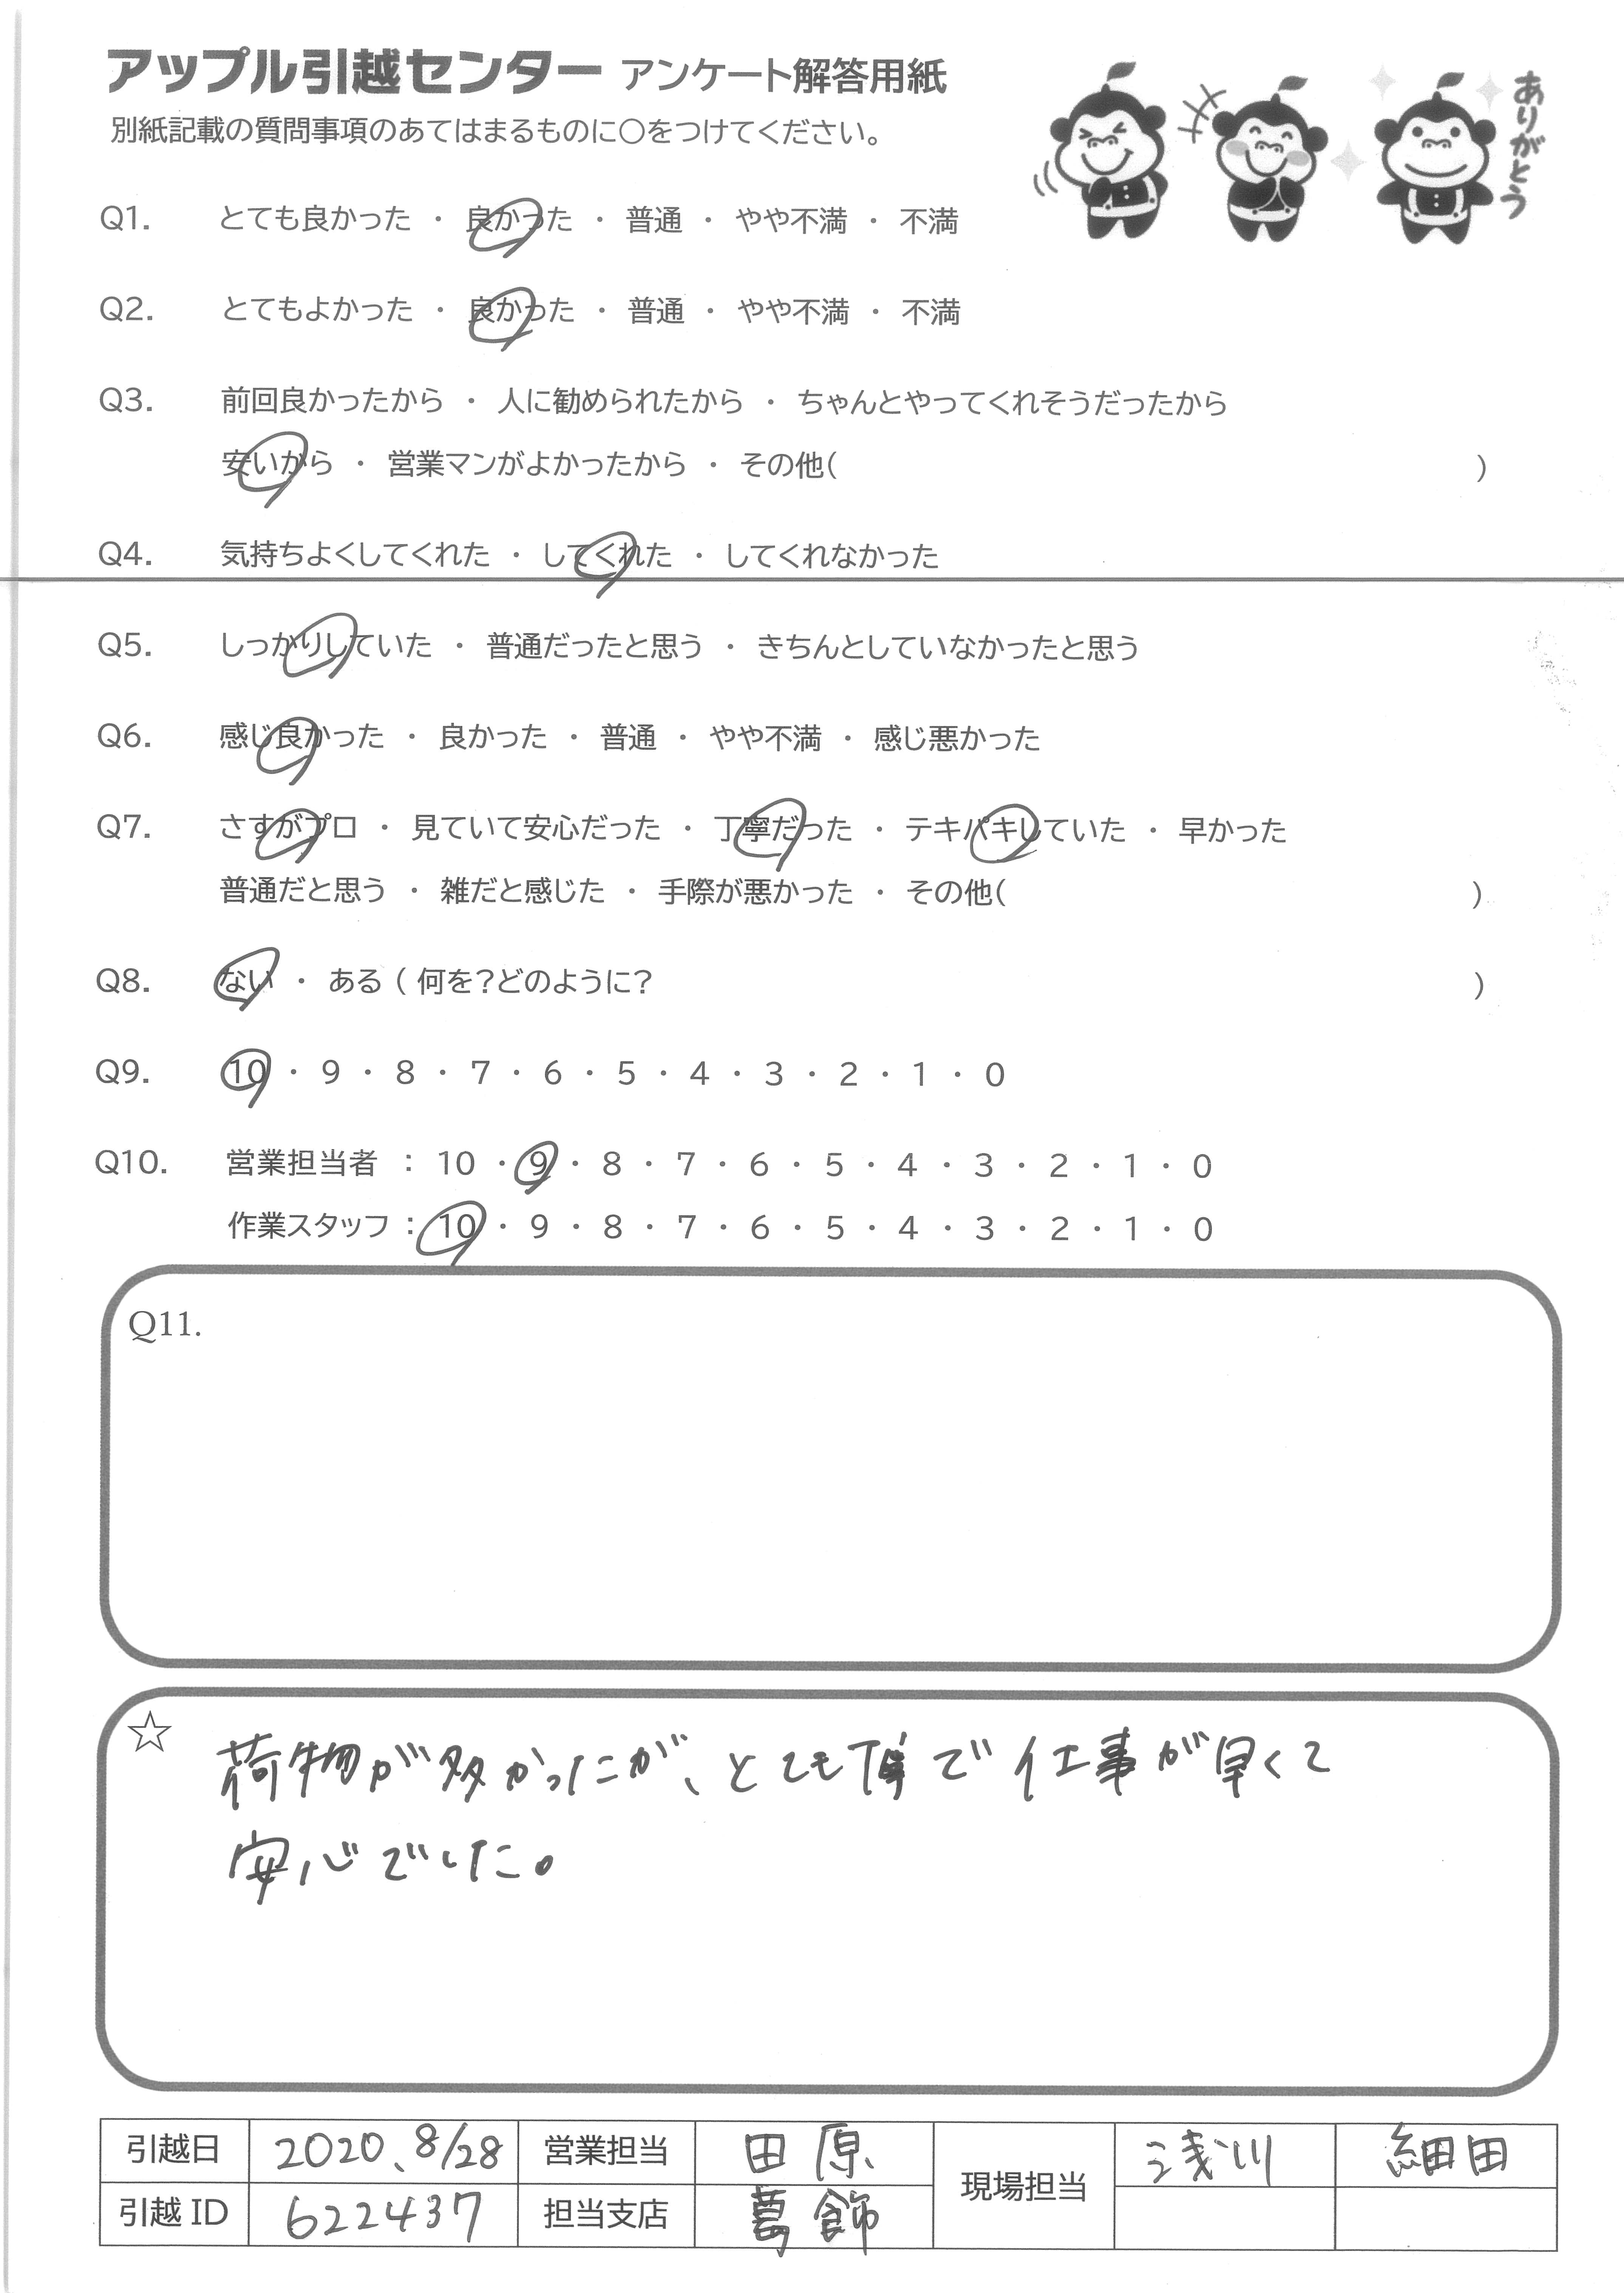 アップル引越センター アンケート解答用紙
別紙記載の質問事項のあてはまるものに○をつけてください。
ありがとう
Q1. とても良かった ・ 良かった ・ 普通 ・ やや不満 ・ 不満
Q2. とてもよかった ・ 良かった ・ 普通 ・ やや不満 ・ 不満
Q3. 前回良かったから ・ 人に勧められたから ・ ちゃんとやってくれそうだったから
安いから ・ 営業マンがよかったから ・ その他( )
Q4. 気持ちよくしてくれた ・ してくれた ・ してくれなかった
Q5. しっかりしていた ・ 普通だったと思う ・ きちんとしていなかったと思う
Q6. 感じ良かった ・ 良かった ・ 普通 ・ やや不満 ・ 感じ悪かった
Q7. さすがプロ ・ 見ていて安心だった ・ 丁寧だった ・ テキパキしていた ・ 早かった
普通だと思う ・ 雑だと感じた ・ 手際が悪かった ・ その他( )
Q8. ない ・ ある ( 何を?どのように? )
Q9. 10 ・ 9 ・ 8 ・ 7 ・ 6 ・ 5 ・ 4 ・ 3 ・ 2 ・ 1 ・ 0
Q10. 営業担当者 : 10 ・ 9 ・ 8 ・ 7 ・ 6 ・ 5 ・ 4 ・ 3 ・ 2 ・ 1 ・ 0
作業スタッフ : 10 ・ 9 ・ 8 ・ 7 ・ 6 ・ 5 ・ 4 ・ 3 ・ 2 ・ 1 ・ 0
Q11.
☆ 荷物が多かったが、とても丁寧で仕事が早くて
安心でした。
引越日 2020、8/28 営業担当 田原 現場担当 浅川 細田
引越ID 622437 担当支店 葛飾